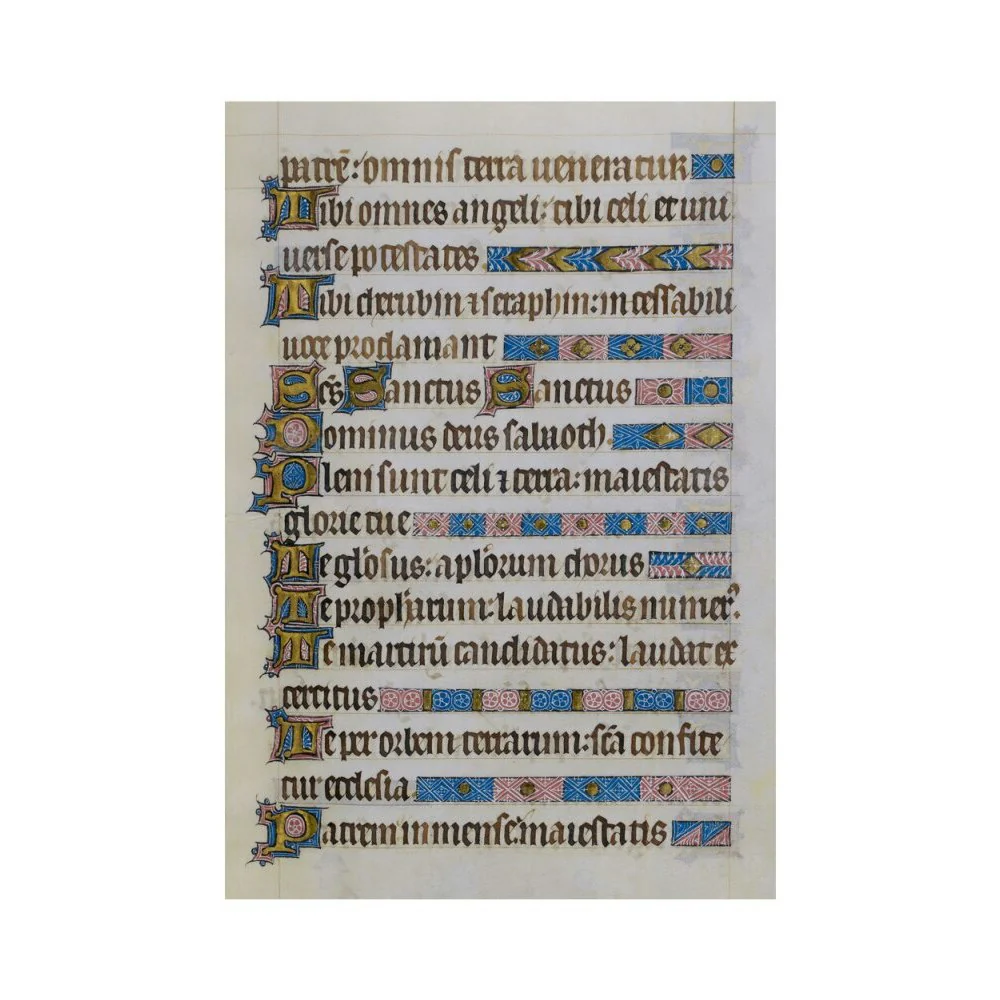 patrē: omnis terra ueneratur
Tibi omnes angeli: tibi celi et uni
uerse potestates
Tibi cherubin ⁊ seraphin: incessabili
uoce proclamant
Sc̄s Sanctus Sanctus
Dominus deus sabaoth
Pleni sunt celi ⁊ terra: maiestatis
glorie tue
Te gl̄osus: apl̄orum chorus
Te propharum: laudabilis numerꝰ
Te martirū candidatus: laudat ex
ercitus
Te per orbem terrarum: sc̄a confite
tur ecclesia
Patrem inmense maiestatis